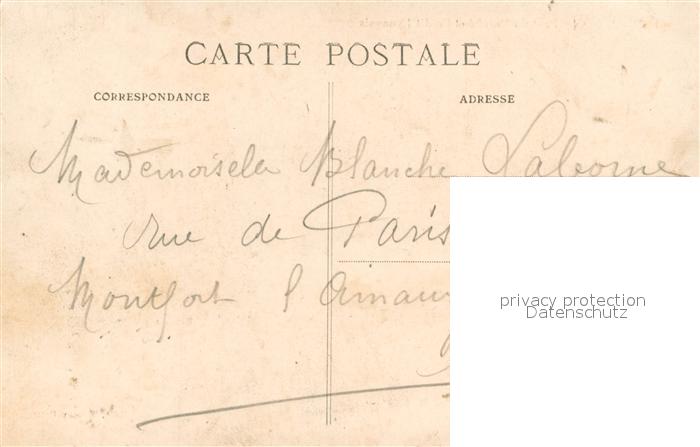 CARTE POSTALE
CORRESPONDANCE
ADRESSE
Mademoisele Blanche
rue de Paris
Montfort l'Amaury
privacy protection
Datenschutz